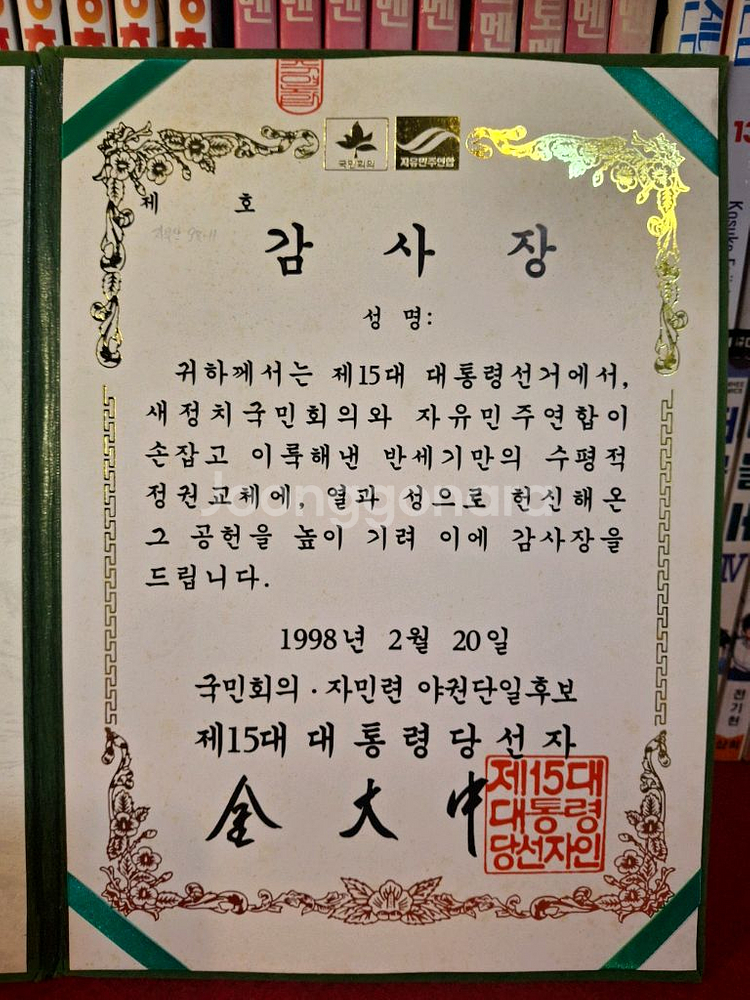 국민회의
자유민주연합
제 호
감 사 장
성 명:
귀하께서는 제15대 대통령선거에서,
새정치국민회의와 자유민주연합이
손잡고 이룩해낸 반세기만의 수평적
정권교체에, 열과 성으로 헌신해온
그 공헌을 높이 기려 이에 감사장을
드립니다.
1998년 2월 20일
국민회의·자민련 야권단일후보
제15대 대통령당선자
金 大 中
제15대
대통령
당선자인
Joonggonara
전기현